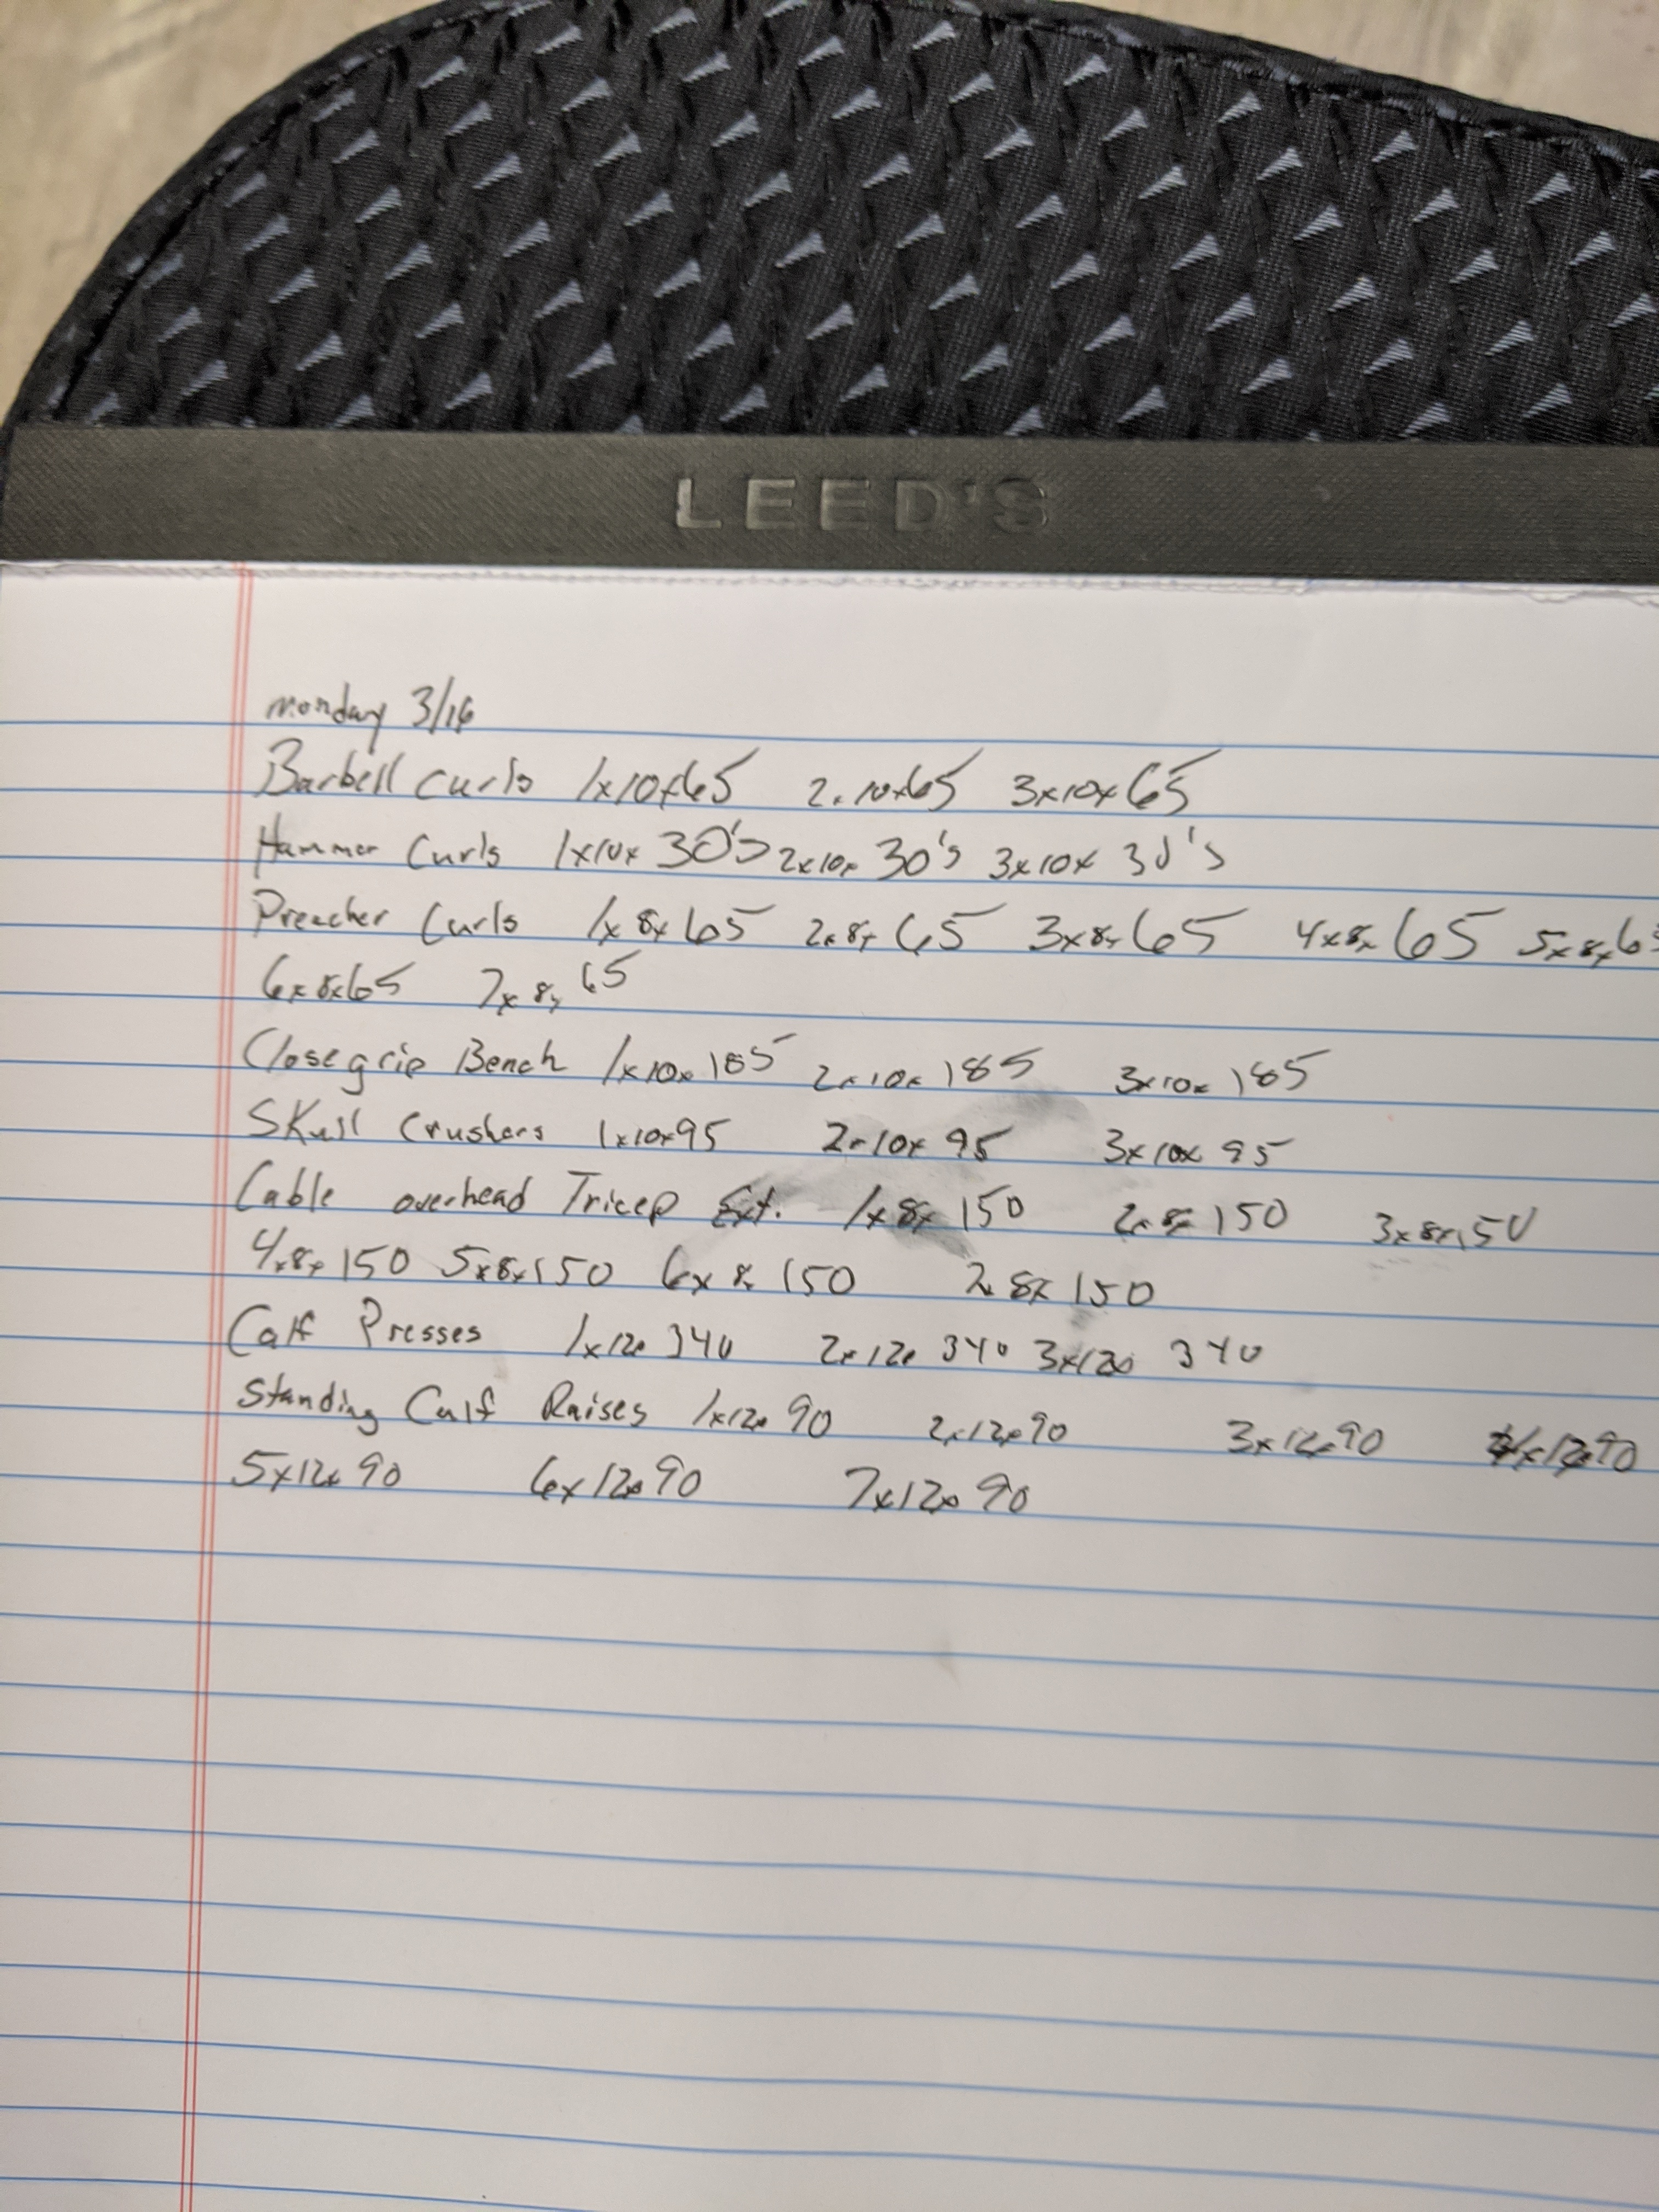 LEED'S
monday 3/16
Barbell Curls 1x10x65 2x10x65 3x10x65
Hammer Curls 1x10x 30's 2x10x 30's 3x10x 30's
Preacher Curls 1x8x65 2x8x65 3x8x65 4x8x65 5x8x65
6x8x65 7x8x65
Close grip Bench 1x10x185 2x10x185 3x10x185
Skull Crushers 1x10x95 2x10x95 3x10x95
Cable overhead Tricep Ext. 1x8x150 2x8x150 3x8x150
4x8x150 5x8x150 6x8x150 7x8x150
Calf Presses 1x12x340 2x12x340 3x12x340
Standing Calf Raises 1x12x90 2x12x90 3x12x90 4x12x90
5x12x90 6x12x90 7x12x90